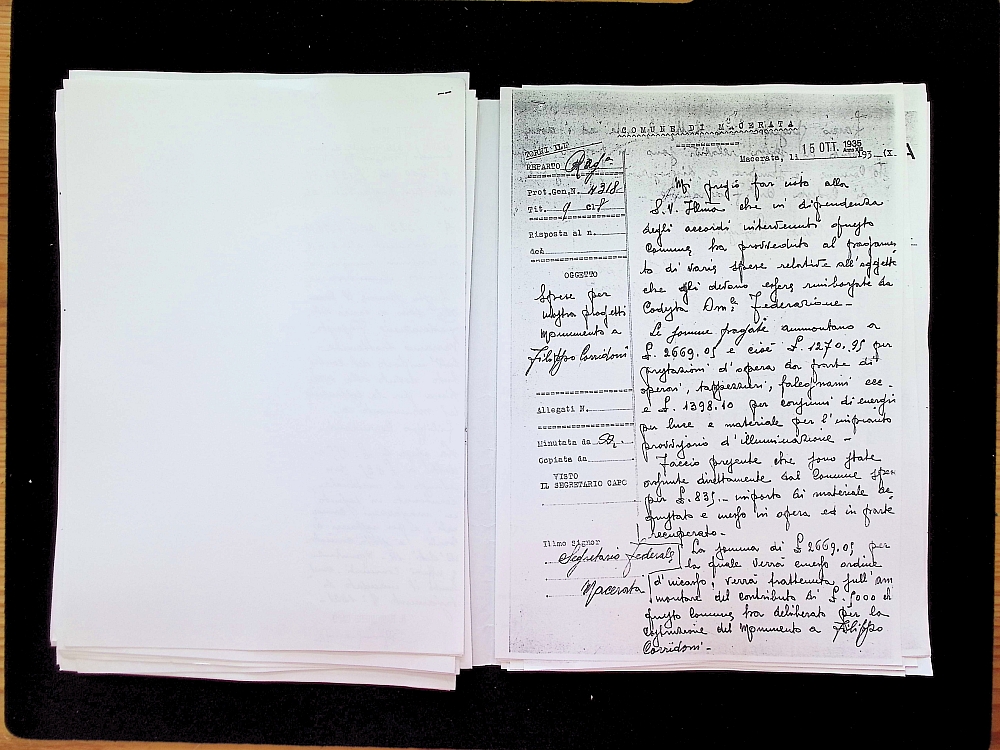 COMUNE DI MACERATA
15 OTT. 1935
Macerata, li 193 (X.
A
REPARTO Rag.a
Prot.Gen.N. 4318
Tit.
Risposta al n.
del
OGGETTO
Spese per
mostra progetti
Monumento a
Filippo Corridoni
Allegati N.
Minutata da
Copiata da
VISTO
IL SEGRETARIO CAPO
Illmo Signor
Segretario Federale
Macerata
Mi pregio far noto alla
S.V. Illma che in dipendenza
degli accordi intervenuti questo
Comune ha provveduto al pagamen
to di varie spese relative all'oggetto
che gli devono essere rimborsate da
Codesta On. Federazione.-
Le somme pagate ammontano a
£. 2669.05 e cioè £. 1270.95 per
prestazioni d'opera da parte di
operai, tappezzieri, falegnami ecc.
e £. 1398.10 per consumi di energia
per luce e materiale per l'impianto
provvisorio d'illuminazione -
Faccio presente che sono state
direttamente dal Comune spese
per £. 835.- importo di materiale ac
quistato e messo in opera ed in parte
recuperato.-
La somma di £ 2669.05 per
la quale verrà emesso ordine
d'incasso, verrà trattenuta sull'am
montare del contributo di £. 5000 ch
questo Comune ha deliberato per la
costruzione del Monumento a Filippo
Corridoni.-